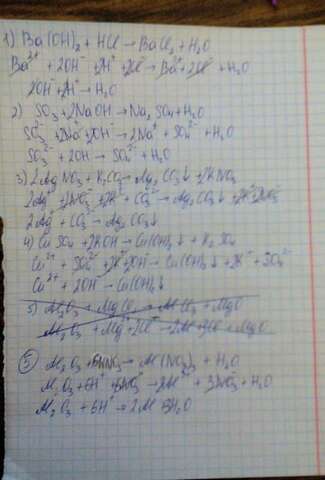 1) Ba(OH)2 + HCl → BaCl2 + H2O
Ba2+ + 2OH- + H+ + 2Cl- → Ba2+ + 2Cl- + H2O
2OH- + H+ → H2O
2) SO3 + 2NaOH → Na2SO4 + H2O
SO3 + 2Na+ + 2OH- → 2Na+ + SO42- + H2O
SO3 + 2OH → SO42- + H2O
3) 2AgNO3 + K2CO3 → Ag2CO3↓ + 2KNO3
2Ag+ + 2NO3- + 2K+ + CO32- → Ag2CO3↓ + 2K+ + 2NO3-
2Ag+ + CO32- → Ag2CO3↓
4) CuSO4 + 2KOH → Cu(OH)2↓ + K2SO4
Cu2+ + SO42- + 2K+ + 2OH- → Cu(OH)2↓ + 2K+ + SO42-
Cu2+ + 2OH- → Cu(OH)2↓
5) Al2O3 + MgCl2 → AlCl3 + MgO
Al2O3 + Mg
5 Al2O3 + 6HNO3 → Al(NO3)3 + H2O
Al2O3 + 6H+ + 6NO3- → 2Al3+ + 3NO3- + H2O
Al2O3 + 6H+ → 2Al 3H2O